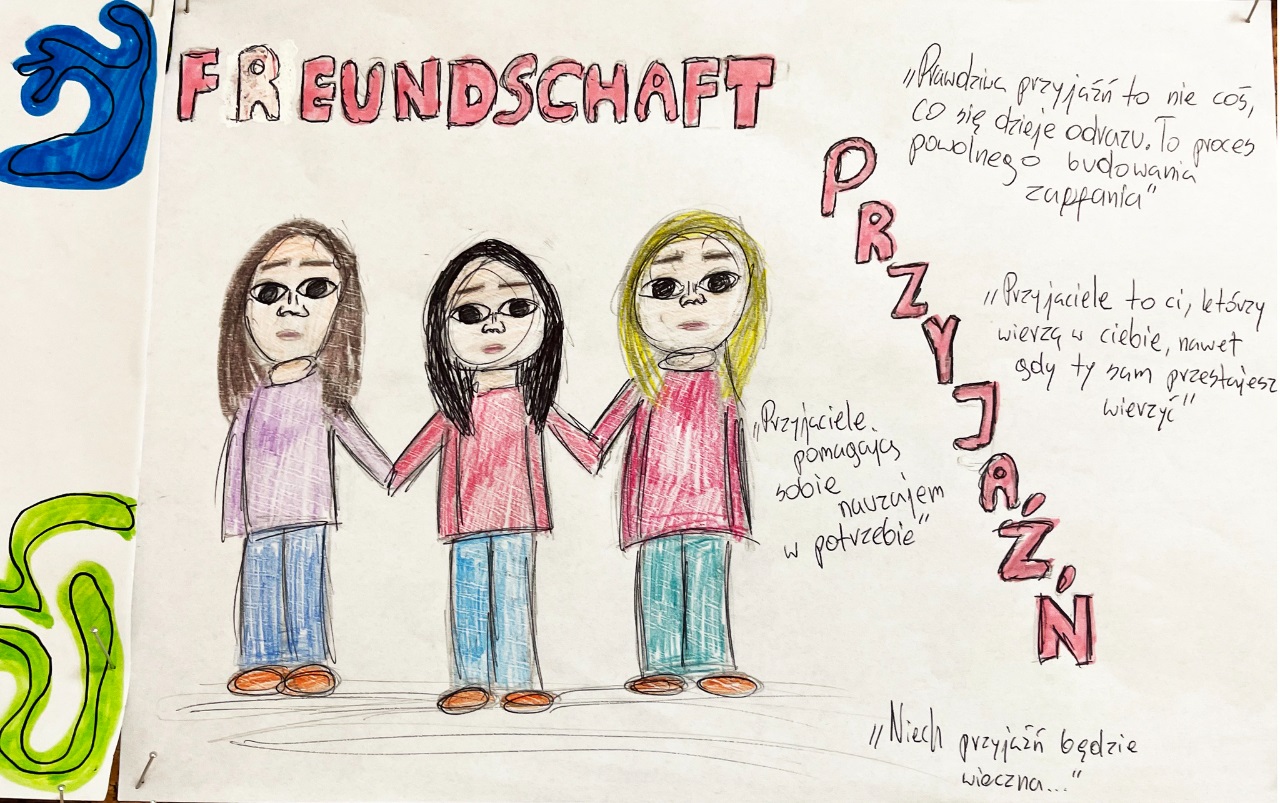 FREUNDSCHAFT
„Prawdziwa przyjaźń to nie coś,
co się dzieje odrazu. To proces
powolnego budowania
zaufania"
PRZYJAŹŃ
„Przyjaciele to ci, którzy
wierzą w ciebie, nawet
gdy ty sam przestajesz
wierzyć"
„Przyjaciele
pomagają
sobie
nawzajem
w potrzebie"
„Niech przyjaźń będzie
wieczna..."